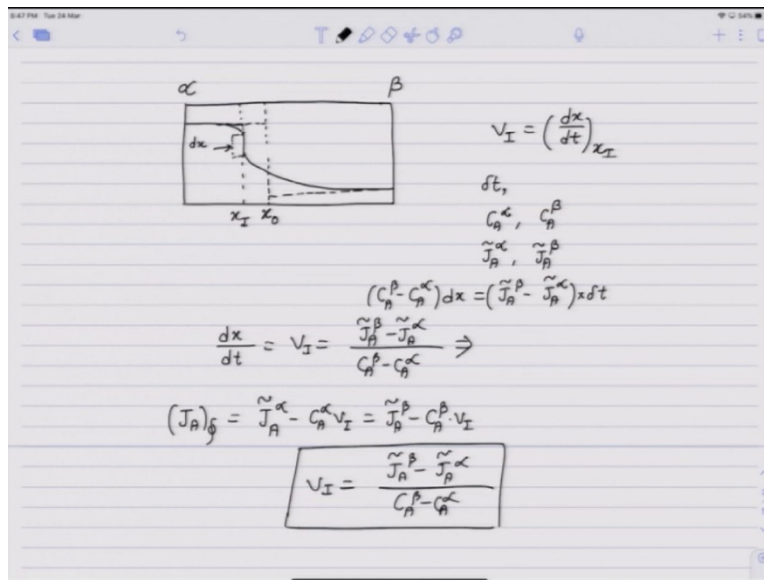 8:47 PM Tue 24 Mar
54%
α β
dx
x_I x_0
V_I = (dx/dt)_{x_I}
δt,
C_A^α, C_A^β
J̃_A^α, J̃_A^β
(C_A^β - C_A^α) dx = (J̃_A^β - J̃_A^α) × δt
dx/dt = V_I = (J̃_A^β - J̃_A^α)/(C_A^β - C_A^α) ⇒
(J_A)_∮ = J̃_A^α - C_A^α V_I = J̃_A^β - C_A^β · V_I
V_I = (J̃_A^β - J̃_A^α)/(C_A^β - C_A^α)